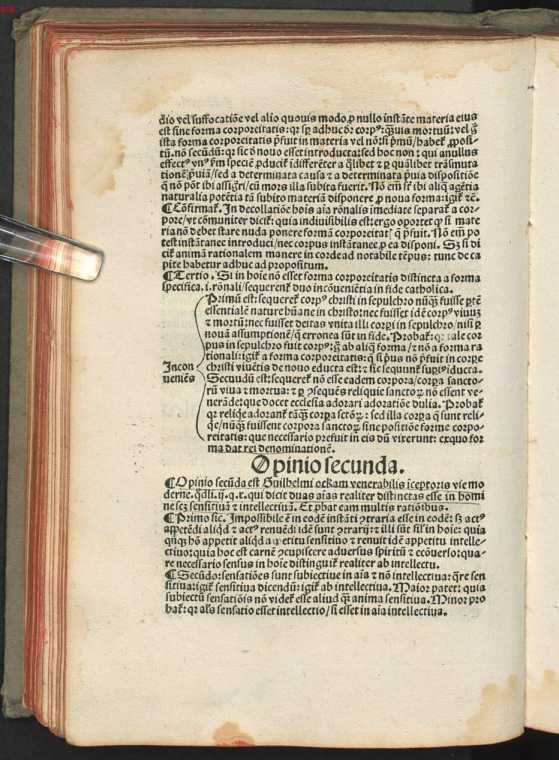 dio vel suffocatiõe vel alio quouis modo, ꝓ nullo instãte materia eius
est sine forma corporeitatis: qꝛ sp̃ adhuc dr̃ corpꝰ: q̃uis mortuũ: vel ꝙ
ista forma corporeitatis p̃fuit in materia vel nõ: si pꝛimũ / habeĩ ꝓposi-
tũ. nõ secũdũ: qꝛ sic ð nouo esset introducta: sed hoc non: qui anullus
effectꝰ vnꝰ fm̃ specie ꝓducit̃ idifferẽter a q̃libet ⁊ ꝑ quãlibet trãsmuta
tionẽ p̃uiã / sed a determinata causa ⁊ a determinata p̃uia dispositiõe
q̃ nõ põt ibi assig̃ri / cũ mors illa subita fuerit. Nõ em̃ sr̃ ibi aliq̃ agẽtia
naturalia potẽtia tã subito materiã disponere ꝓ noua forma: igit̃ ⁊c̃.
¶ Cõfirmat̃. In decollatiõe hois aĩa rõnalis imediate separat̃ a cor-
pore / vt cõmuniter dicit̃: quia indiuisibilis est: ergo oportet ꝙ si mate
ria nõ debet stare nuda ponere formã corporeitatꝭ q̃ p̃fuit. Nõ em̃ po
test instãtanee introduci / nec corpus instãtanee ꝓ ea disponi. Sꝫ si di
cit̃ animã rationalem manere in corde ad notabile tẽpus: tunc de ca
pite habetur adhuc ad propositum.
¶ Tertio. Si in hoie nõ esset forma corporeitatis distincta a forma
specifica. i. rõnali / sequerent̃ duo incõueniẽtia in fide catholica.
Incon
ueniẽs
Primũ est: sequeret̃ corpꝰ christi in sepulchro nũq̃ fuisse ꝑtẽ
essentialẽ nature hũane in christo: nec fuisset idẽ corpꝰ viuũ
⁊ mortuũ: nec fuisset deitas vnita illi corꝑi in sepulchro / nisi ꝑ
nouã assumptionẽ / q̃ erronea sũt in fide. Probat̃: qꝛ tale cor
pus in sepulchro fuit corpꝰ: ꝙ ab aliq̃ forma / ⁊ nõ a forma ra
tionali: igit̃ a forma corporeitatis: q̃ si pꝛius nõ p̃fuit in corꝑe
christi viuẽtis de nouo educta est: ⁊ sic sequunt̃ supꝛaꝰ iducta.
Secũdũ est: sequeret̃ nõ esse eadem corpora / corꝑa sancto-
rũ viua ⁊ mortua: ⁊ ꝑ ꝯsequẽs reliquie sanctoꝝ nõ essent ve-
nerãde: que docet ecclesia adorari adoratiõe dulia. Probat̃
qꝛ reliq̃e adorant̃ tãq̃ corꝑa sctõꝝ: sed illa corꝑa q̃ sunt reli-
q̃e / nũq̃ fuissent corpora sanctoꝝ sine positiõe forme corpo-
reitatis: que necessario prefuit in eis dũ vixerunt: ex quo for
ma dat rei denominationẽ.
Opinio secunda.
¶ Opinio secũda est Guilhelmi ockam venerabilis iceptoris vie mo
derne. q̃dli. ij. q. x. qui dicit duas aĩas realiter distinctas esse in homi
ne scꝫ sensitiuã ⁊ intellectiuã. Et ꝓbat eam multis ratiõibus.
¶ Primo sic. Impossibile ẽ in eodẽ instãti ꝯtraria esse in eodẽ: sꝫ actꝰ
appetẽdi aliq̃d ⁊ actꝰ renuẽdi idẽ sunt ꝯtrarij: ⁊ illi sũt sil̃ in hoie: quia
qñqꝫ hõ appetit aliq̃d appetitu sensitiuo ⁊ renuit idẽ appetitu intelle-
ctiuo: quia hoc est carnẽ ꝯcupiscere aduersus spiritũ ⁊ ecõuerso: qua-
re necessario sensus in hoie distinguit̃ realiter ab intellectu.
¶ Secũdo: sensatiões sunt subiectiue in aĩa ⁊ nõ intellectiua: q̃re sen
sitiua: igit̃ sensitiua dicendũ: igit̃ ab intellectiua. Maior patet: quia
subiectũ sensatiõis nõ videt̃ esse aliud q̃ anima sensitiua. Minor pro
bat̃: qꝛ al̃s sensatio esset intellectio / si esset in aĩa intellectiua.